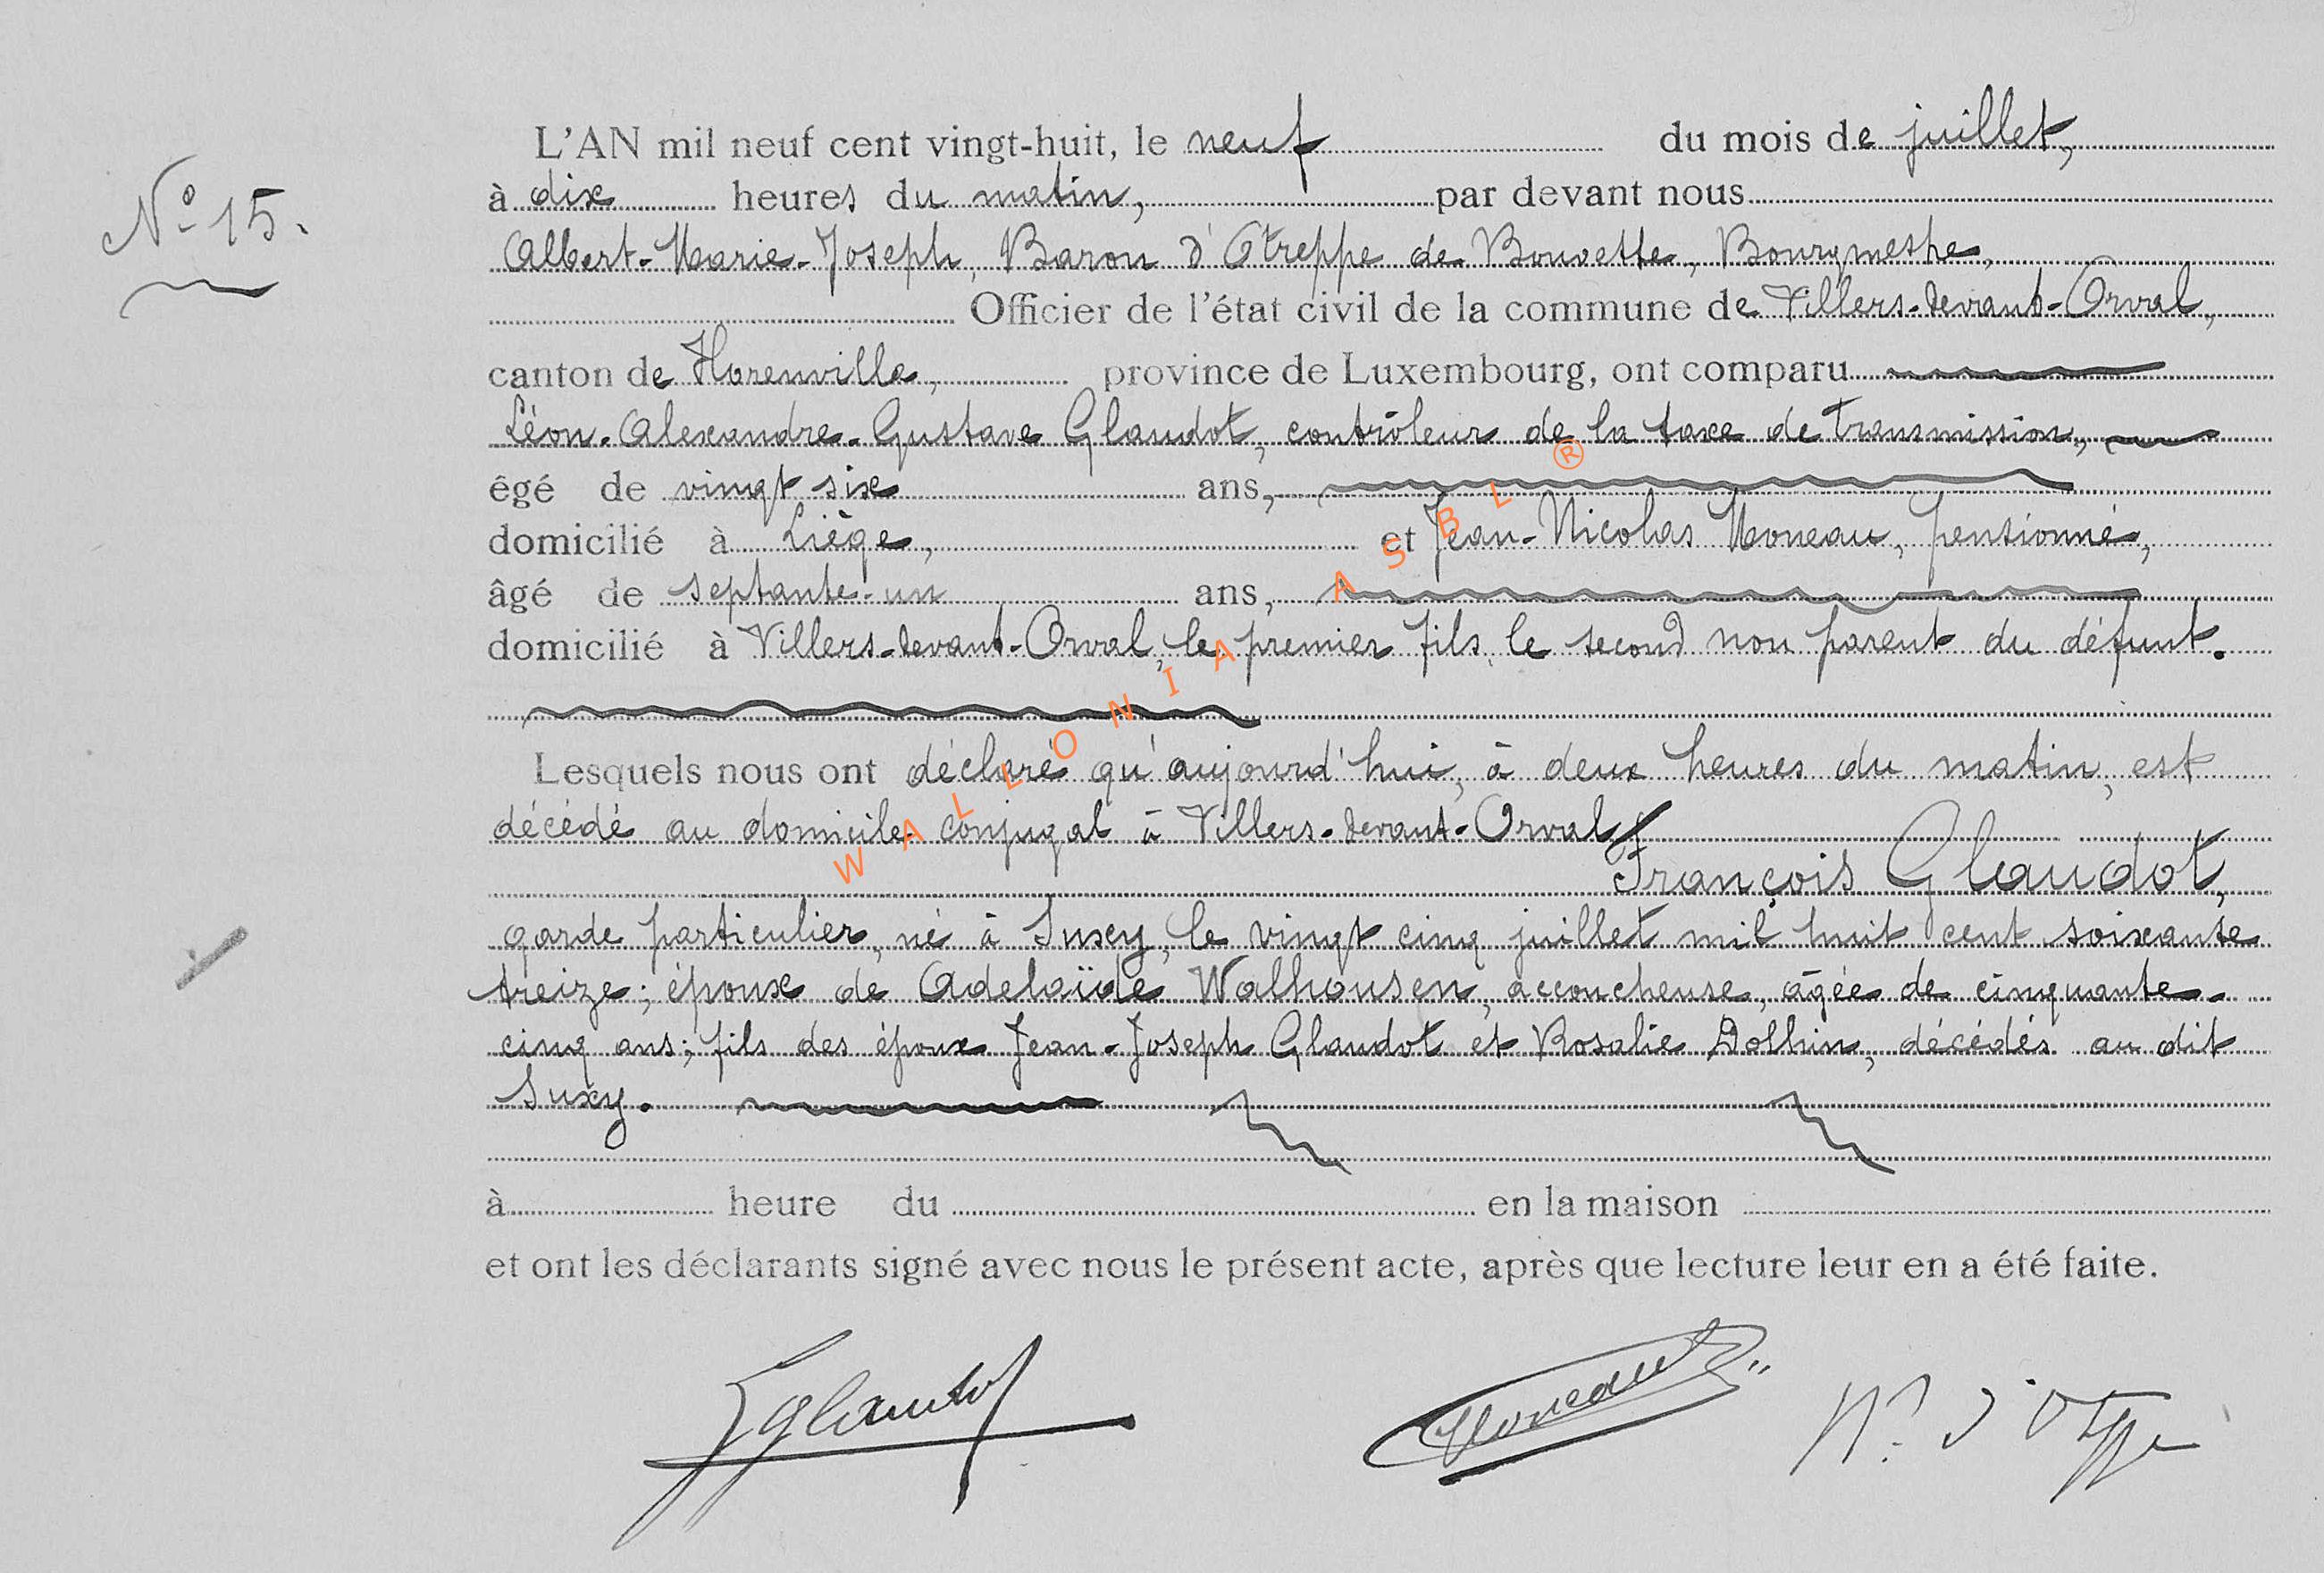 L'AN mil neuf cent vingt-huit, le neuf du mois de juillet,
N° 15.
à dix heures du matin, par devant nous
Albert-Marie-Joseph, Baron d'Otreppe de Bouvette, Bourgmestre,
Officier de l'état civil de la commune de Villers-devant-Orval,
canton de Florenville, province de Luxembourg, ont comparu
Léon-Alexandre-Gustave Glaudot, contrôleur de la taxe de transmission,
êgé de vingt six ans,
domicilié à Liège, et Jean-Nicolas Moneau, pensionné,
âgé de septante-un ans,
domicilié à Villers-devant-Orval, le premier fils, le second non parent du défunt.
Lesquels nous ont déclaré qu'aujourd'hui, à deux heures du matin, est
décédé au domicile conjugal à Villers-devant-Orval
François Glaudot,
garde particulier, né à Suxy, le vingt cinq juillet mil huit cent soixante
treize; époux de Adelaïde Walhousen, accoucheuse, âgée de cinquante-
cinq ans; fils des époux Jean-Joseph Glaudot et Rosalie Dolhin, décédés au dit
Suxy.
à heure du en la maison
et ont les déclarants signé avec nous le présent acte, après que lecture leur en a été faite.
LGlaudot Moneau d'Otreppe
WALLONIA ASBL ®